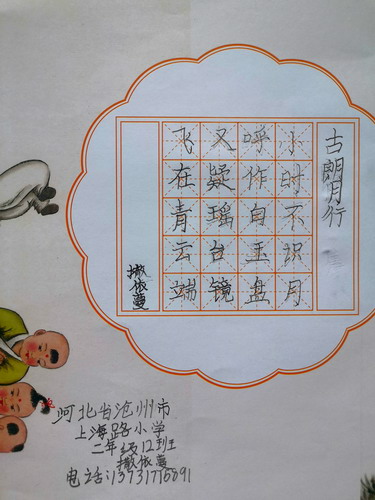 古朗月行
小时不识月
呼作白玉盘
又疑瑶台镜
飞在青云端
撒依蔓
河北省沧州市
上海路小学
二年级12班
撒依蔓
电话: